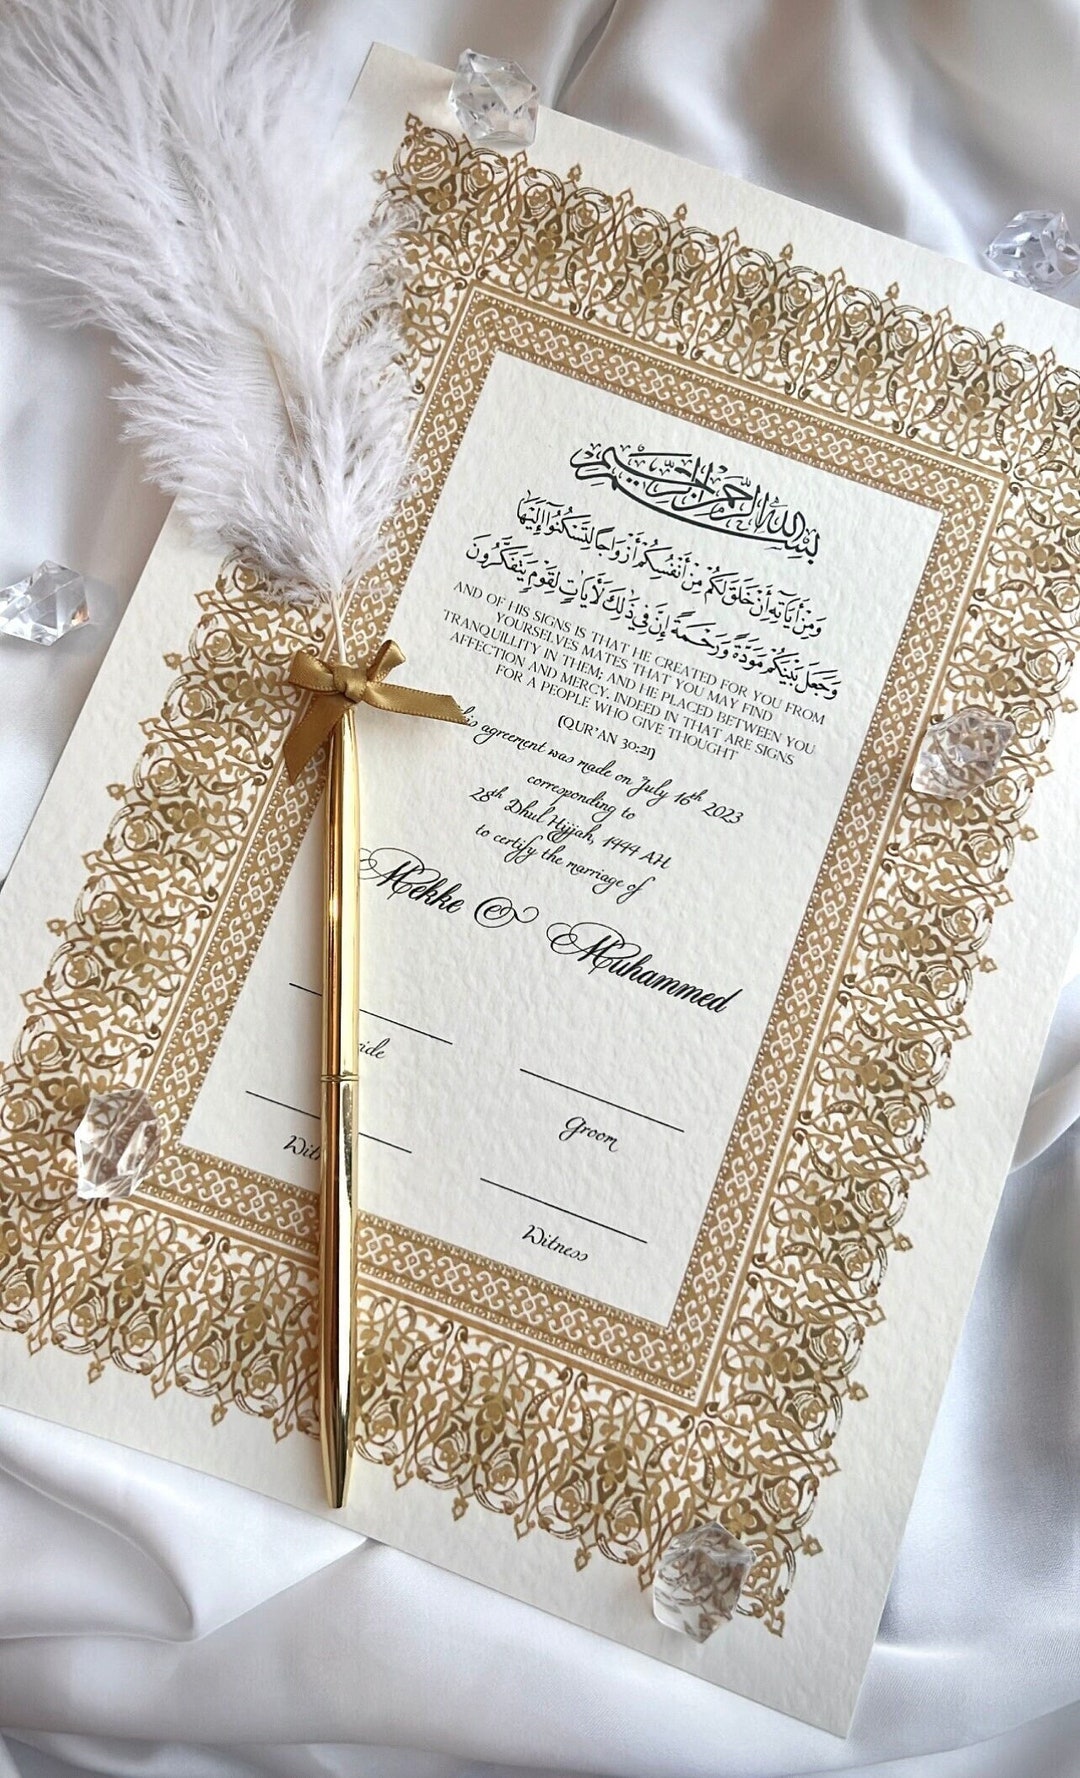 بسم الله الرحمن الرحيم
وَمِنْ آيَاتِهِ أَنْ خَلَقَ لَكُم مِّنْ أَنفُسِكُمْ أَزْوَاجًا لِّتَسْكُنُوا إِلَيْهَا
وَجَعَلَ بَيْنَكُم مَّوَدَّةً وَرَحْمَةً إِنَّ فِي ذَٰلِكَ لَآيَاتٍ لِّقَوْمٍ يَتَفَكَّرُونَ
AND OF HIS SIGNS IS THAT HE CREATED FOR YOU FROM
YOURSELVES MATES THAT YOU MAY FIND
TRANQUILLITY IN THEM; AND HE PLACED BETWEEN YOU
AFFECTION AND MERCY. INDEED IN THAT ARE SIGNS
FOR A PEOPLE WHO GIVE THOUGHT
(QUR'AN 30:21)
agreement was made on July 16th 2023
corresponding to
28th Dhul Hijjah, 1444 AH
to certify the marriage of
Mekke & Muhammed
Groom
Witness